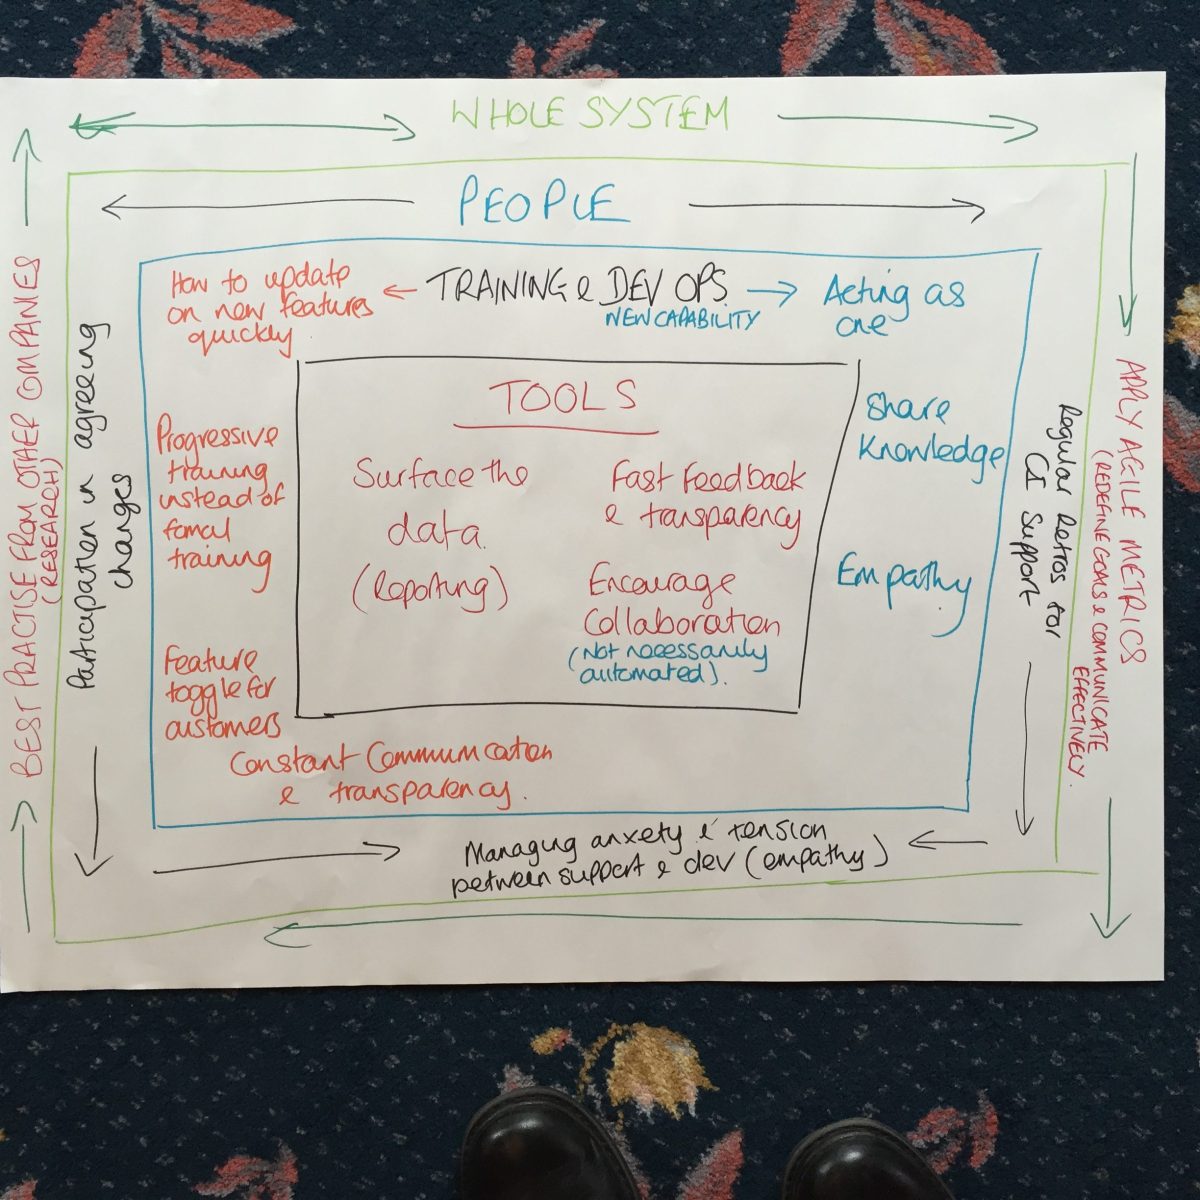 WHOLE SYSTEM
PEOPLE
TRAINING & DEV OPS
NEW CAPABILITY
How to update
on new features
quickly
Progressive
training
instead of
formal
training
Feature
toggle for
customers
Constant Communication
& transparency.
Acting as
one
Share
Knowledge
Empathy
TOOLS
Surface the
data.
(Reporting)
Fast feedback
& transparency
Encourage
Collaboration
(Not necessarily
automated).
Managing anxety & tension
between support & dev (empathy)
BEST PRACTISE FROM OTHER COMPANIES
(RESEARCH)
Participation in agreeing
changes
Regular Retros for
CI Support
APPLY AGILE METRICS
(REDEFINE GOALS & COMMUNICATE
EFFECTIVELY.